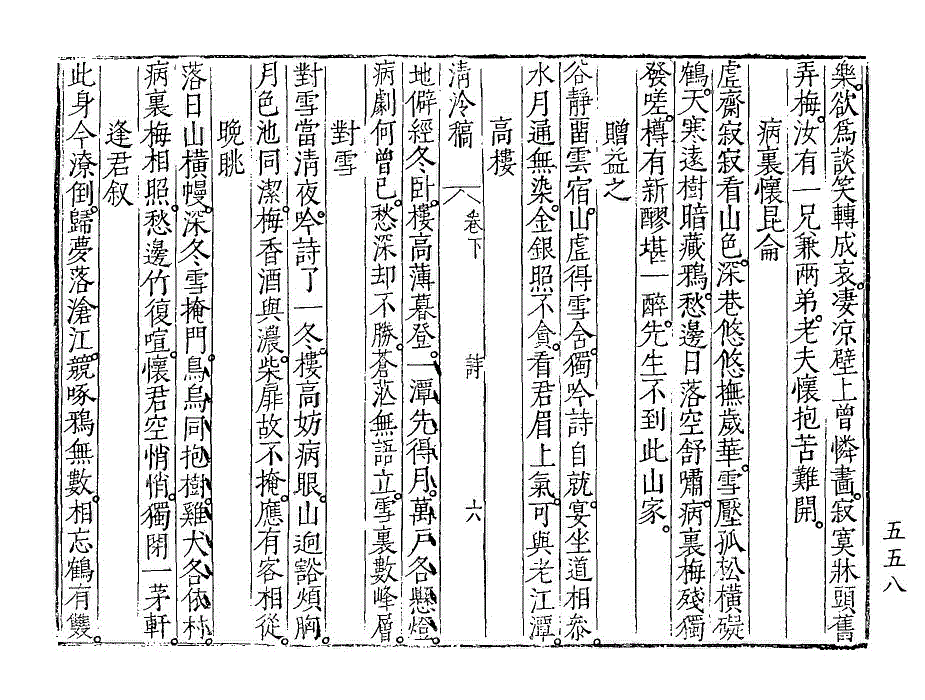 樂。欲爲談笑轉成哀。凄凉壁上曾憐畵。寂寞牀頭舊
弄梅。汝有一兄兼兩弟。老夫懷抱苦難開。
病裏懷昆侖
虗齋寂寂看山色。深巷悠悠撫歲華。雪壓孤松橫礙
鶴。天寒遠樹暗藏鴉。愁邊日落空舒嘯。病裏梅殘獨
發嗟。樽有新醪堪一醉。先生不到此山家。
贈益之
谷靜留雲宿。山虗得雪含。獨吟詩自就。宴坐道相叅。
水月通無染。金銀照不貪。看君眉上氣。可與老江潭。
高樓
淸冷稿 卷下 詩 六
地僻經冬卧。樓高薄暮登。一潭先得月。萬戶各懸燈。
病劇何曾已。愁深却不勝。蒼茫無語立。雪裏數峰層。
對雪
對雪當淸夜。吟詩了一冬。樓高妨病眼。山逈豁煩胸。
月色池同潔。梅香酒與濃。柴扉故不掩。應有客相從。
晚眺
落日山橫幔。深冬雪掩門。鳥烏同抱樹。雞犬各依村。
病裏梅相照。愁邊竹復喧。懷君空悄悄。獨閉一茅軒。
逢君叙
此身今潦倒。歸夢落滄江。競啄鴉無數。相忘鶴有雙。
五五八